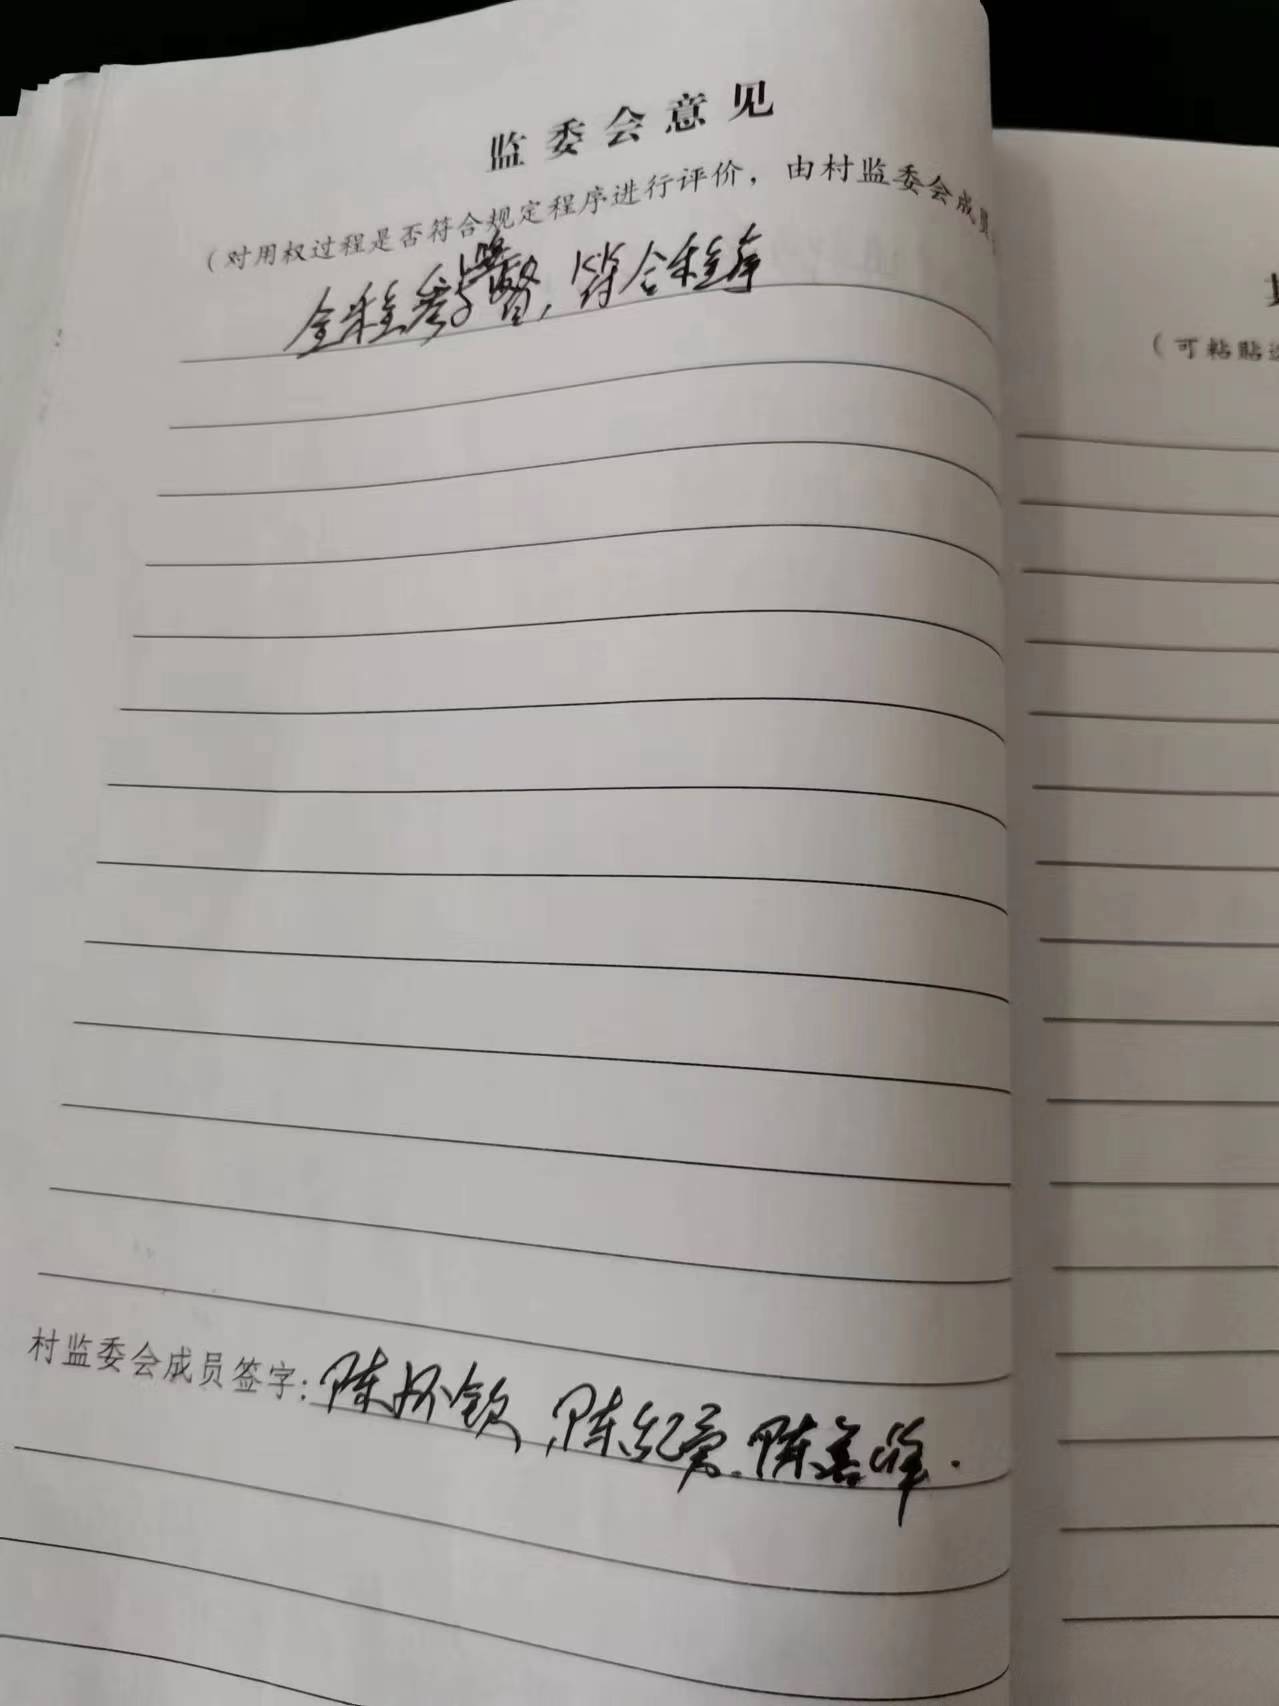 监委会意见
（对用权过程是否符合规定程序进行评价，由村监委会成员
全程参与监督，符合程序
村监委会成员签字：陈怀钦，陈纪亮。陈善峰.
（可粘贴